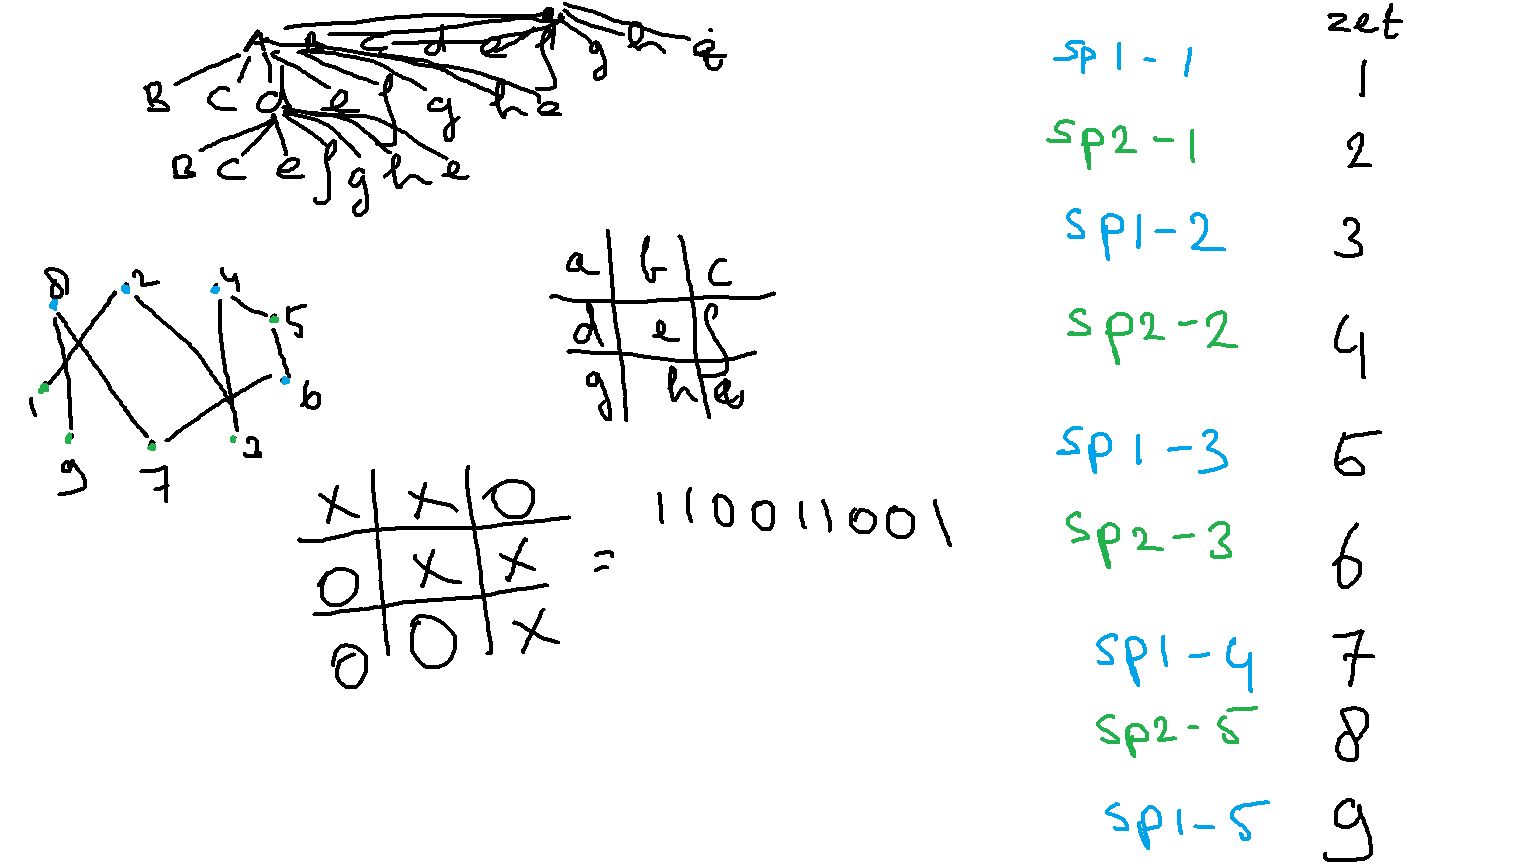 A b c d e f g h i
B C d e f g h e
B C e f g h e
8 2 4
5
1 6
9 7 3
a b c
d e f
g h e
X X O
O X X
O O X
= 110011001
zet
sp1-1 1
sp2-1 2
sp1-2 3
sp2-2 4
sp1-3 5
sp2-3 6
sp1-4 7
sp2-5 8
sp1-5 9